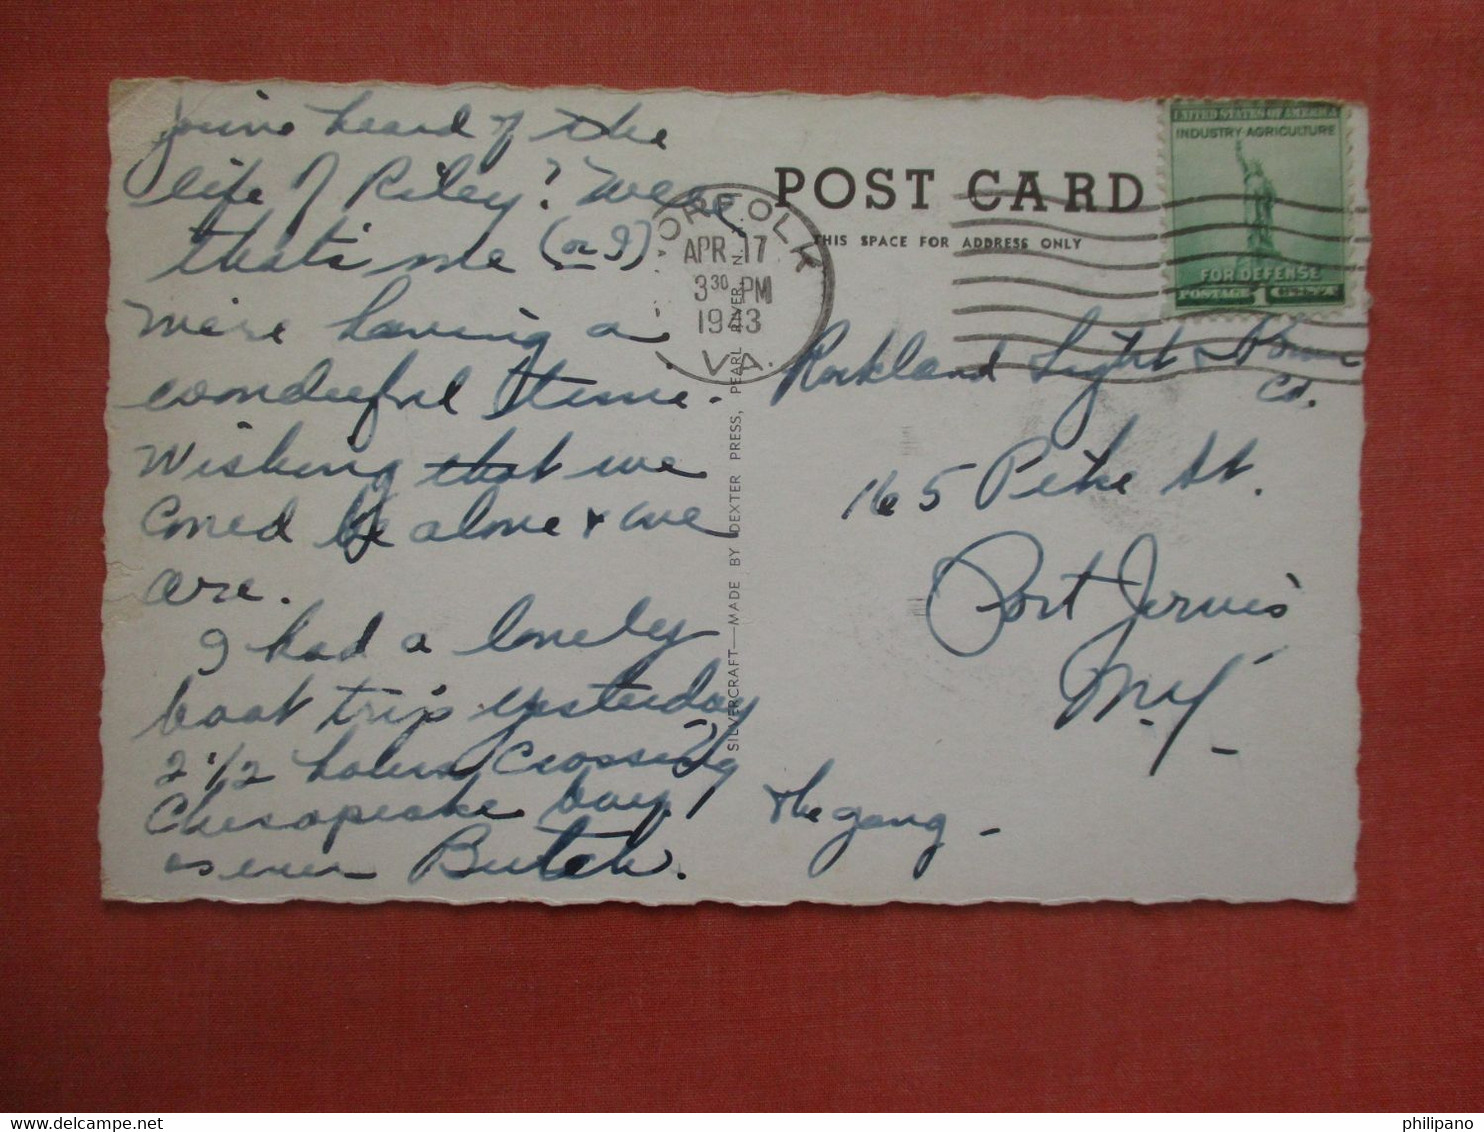 You've heard of the
life of Riley? Well
that's me (or I)
We're having a
wonderful time.
Wishing that we
Could be alone & we
are.
I had a lonely
boat trip yesterday
2 1/2 hours crossing
Chesapeake bay.
as ever Butch.
NORFOLK
APR 17
3 30 PM
1943
VA.
SILVERCRAFT—MADE BY DEXTER PRESS, PEARL RIVER, N. Y.
POST CARD
THIS SPACE FOR ADDRESS ONLY
UNITED STATES OF AMERICA
INDUSTRY AGRICULTURE
FOR DEFENSE
POSTAGE 1 CENT
Rockland Light & Power
Co.
165 Pike St.
Port Jervis
N.Y.
The gang -
philipano